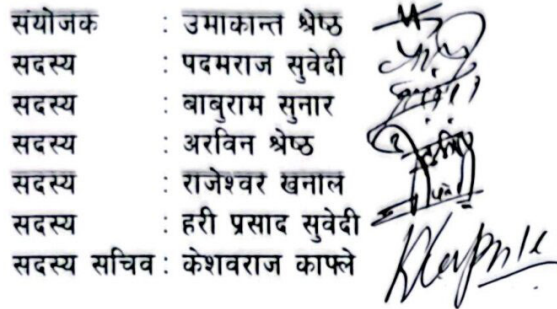 संयोजक : उमाकान्त श्रेष्ठ
सदस्य : पदमराज सुवेदी
सदस्य : बाबुराम सुनार
सदस्य : अरविन श्रेष्ठ
सदस्य : राजेश्वर खनाल
सदस्य : हरी प्रसाद सुवेदी
सदस्य सचिव : केशवराज काफ्ले